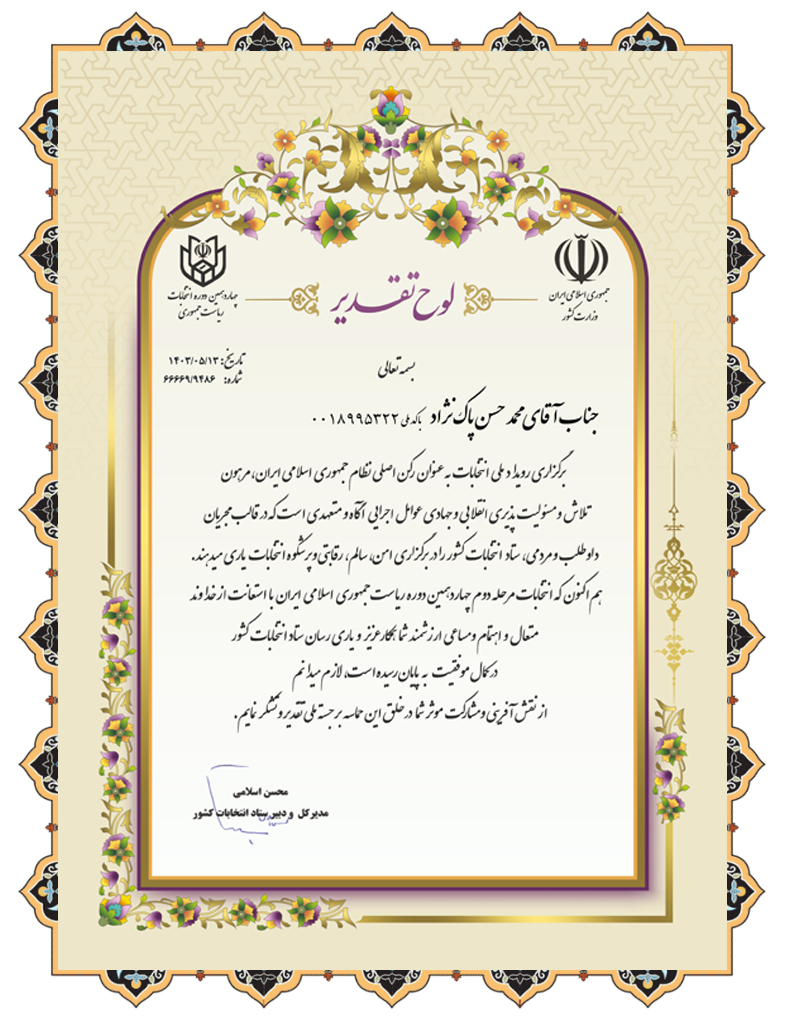 جمهوری اسلامی ایران
وزارت کشور
لوح تقدیر
چهاردهمین دوره انتخابات
ریاست جمهوری
تاریخ: ۱۴۰۳/۰۵/۱۳
شماره: ۶۶۶۶۹/۹۴۸۶
بسمه تعالی
جناب آقای محمد حسن پاک نژاد باکدملی ۰۰۱۸۹۹۵۳۲۲
برگزاری رویداد ملی انتخابات به عنوان رکن اصلی نظام جمهوری اسلامی ایران، مرهون
تلاش و مسئولیت پذیری انقلابی و جهادی عوامل اجرایی آگاه و متعهدی است که در قالب مجریان
داوطلب و مردمی، ستاد انتخابات کشور را در برگزاری امن، سالم، رقابتی و پرشکوه انتخابات یاری میدهند.
هم اکنون که انتخابات مرحله دوم چهاردهمین دوره ریاست جمهوری اسلامی ایران با استعانت از خداوند
متعال و اهتمام و مساعی ارزشمند شما همکار عزیز و یاری رسان ستاد انتخابات کشور
در کمال موفقیت به پایان رسیده است، لازم میدانم
از نقش آفرینی و مشارکت موثر شما در خلق این حماسه برجسته ملی تقدیر و تشکر نمایم.
محسن اسلامی
مدیرکل و دبیر ستاد انتخابات کشور